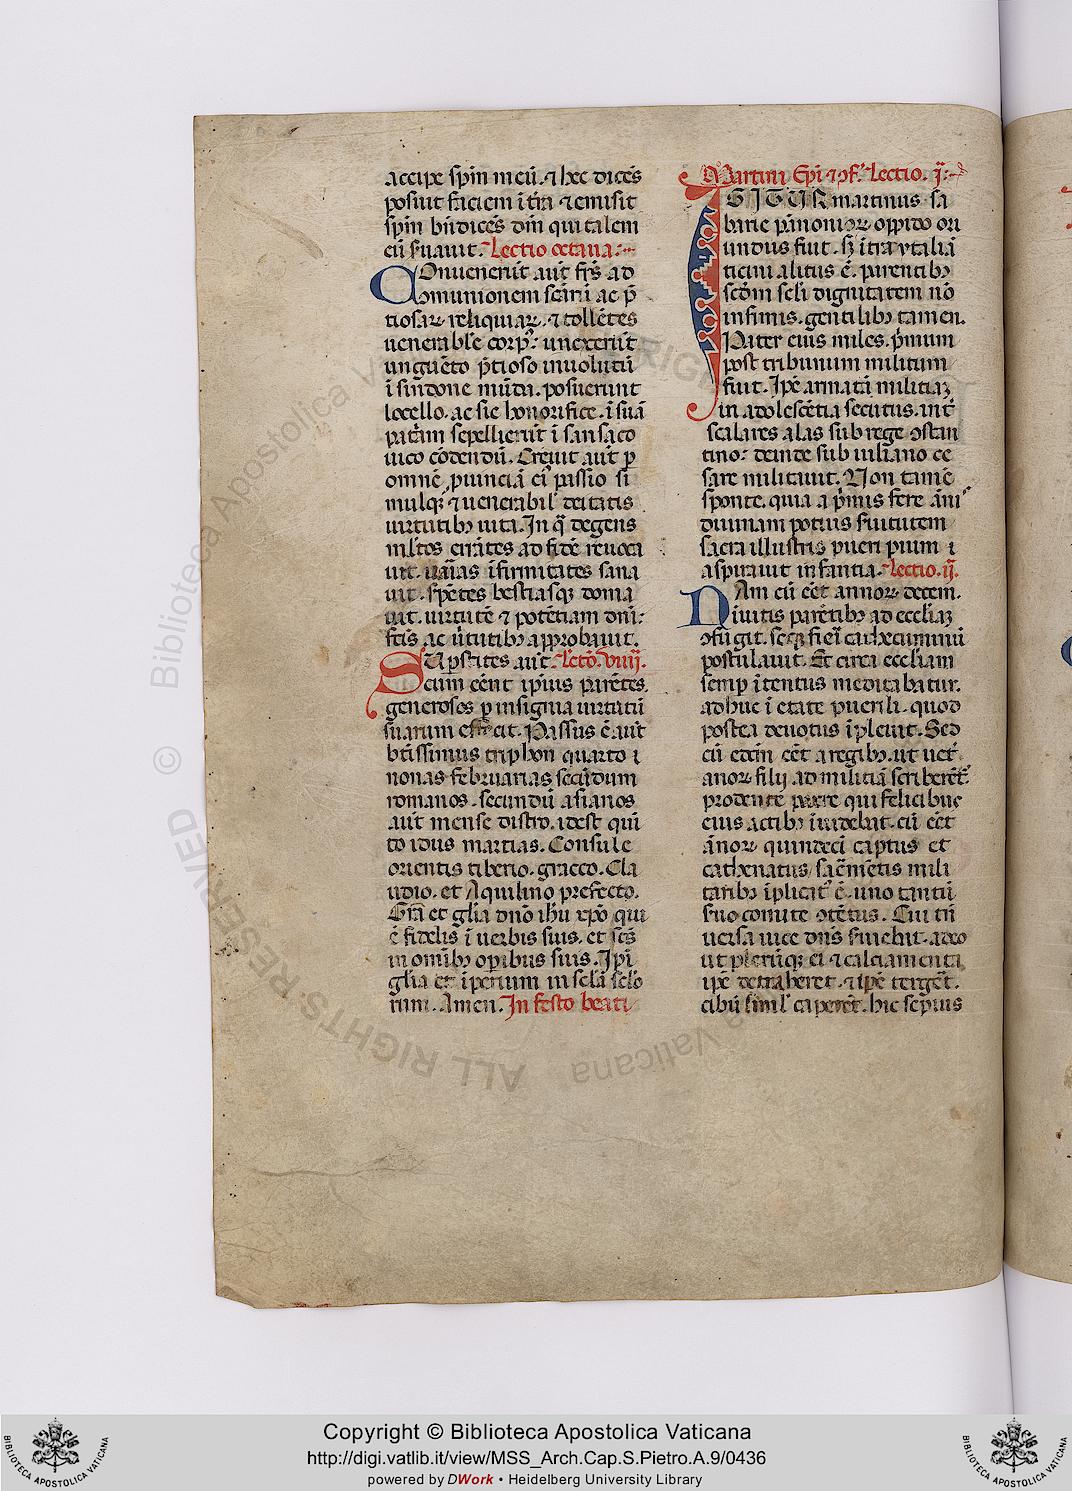 accipe sp̄m meū. ⁊ hec dicēs
posuit faciem ī tr̄a ⁊ emisit
sp̄m bn̄dicēs dm̄ qui talem
eū seruauit. Lectio octaua:
Conuenerūt aut̄ fr̄s ad
comunionem sc̄am ac p̄
tiosaꝝ reliquiaꝝ. ⁊ tollētes
uenerabile corp⁹: unxerūt
unguēto p̄tioso inuolutū
ī sindone mūda. posuerunt
locello. ac sic honorifice. ī suā
patriam sepellierūt ī sansaco
uico cōdendū. Creuit aut̄ ꝑ
omnē puinciā ei⁹ passio si
mulqꝫ ⁊ uenerabil̄ deitatis
uirtutibꝫ uita. In q̄ degens
ml̄tos errātes ad fidē reuoca
uit. uarias īfirmitates sana
uit. sꝑentes bestiasqꝫ doma
uit. uirtutē ⁊ potētiam dn̄i:
fc̄is ac uirtutibꝫ approbauit.
Suꝑstites aut̄ Lectō. viiij.
cum eēnt ip̄ius parētes.
generosos ꝑ insignia uirtutū
suarum effecit. Passus ē aut̄
bt̄issimus triphon quarto
nonas februarias secūdum
romanos. secundū asianos
aut̄ mense distro. idest quī
to idus martias. Consule
orientis tiberio. gracco. Cla
udio. et Aquilino prefecto.
Grā et gl̄ia dn̄o ih̄u xp̄o qui
ē fidelis ī uerbis suis. et sc̄s
in omībꝫ oꝑibus suis. Ipi
gl̄ia et īperium in scl̄a scl̄o
rum. Amen. In festo beati
Martini Ep̄i ⁊ ɔf. Lectio. j:
IGITUR martinus sa
barie pānonioꝝ oppido ori
undus fuit. sꝫ ītra ytaliā
ticini alitus ē. parentibꝫ
scd̄m scl̄i dignitatem nō
infimis. gentilibꝫ tamen.
Pater eius miles. p̄mum
post tribunum militum
fuit. Ipe armatā militiaꝫ
in adolescētia secutus. int̄
scalares alas sub rege ɔstan
tino: deinde sub iuliano ce
sare militauit. Non tamē
sponte. quia a p̄mis fere ānis
diuinam potius seruitutem
sacra illustris pueri pium
aspirauit infantia. Lectio. ij.
Nam cū eēt annoꝝ decem.
inuitis parētibꝫ ad eccl̄iaꝫ
ɔfugit. seqꝫ fieri cathecuminū
postulauit. Et circa eccl̄iam
semp ītentus meditabatur.
adhuc ī etate puerili. quod
postea deuotus īpleuit. Sed
cū edictū eēt a regibꝫ. ut uet̄
anoꝝ filij ad militiā scriberēt̄
prodente patre qui felicibus
eius actibꝫ īuidebat. cū eēt
ānoꝝ quindecī captus et
cathenatus sacm̄etis mili
taribꝫ īplicit⁹ ē. uno tantū
suo comite ɔtētus. Cui tn̄
uersa uice dn̄s seruiebat. adeo
ut plerūqꝫ ei ⁊ calciamenta
ip̄e detraheret. ⁊ ip̄e tergeret.
cibū siml̄ caperēt. hic sepius
Copyright © Biblioteca Apostolica Vaticana
http://digi.vatlib.it/view/MSS_Arch.Cap.S.Pietro.A.9/0436
powered by DWork • Heidelberg University Library
BIBLIOTECA APOSTOLICA VATICANA
BIBLIOTECA APOSTOLICA VATICANA
© Biblioteca Apostolica Vaticana
© ALL RIGHTS RESERVED